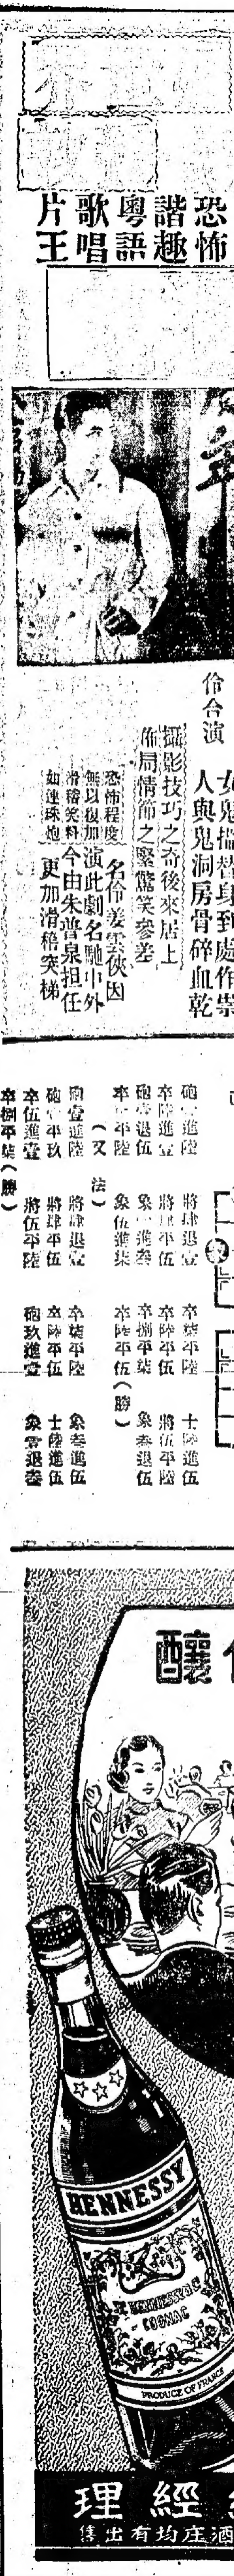 恐怖
諧趣
粵語
歌唱
片王
伶合演
女鬼搵替身到處作祟
人與鬼洞房骨碎血乾
攝影技巧之奇後來居上
佈局情節之緊驚笑參差
恐怖程度
無以復加
滑稽笑料
如連珠炮
名伶姜雲俠因
演此劇名馳中外
今由朱普泉担任
更加滑稽突梯
進陸 將肆退壹 卒柒平陸 士陸進伍
卒陸進壹 將肆平伍 卒陸平伍 將伍平陸
砲壹退伍 象 進叁 卒捌平柒 象叁退伍
平陸 象伍進柒 卒陸平伍(勝)
(又法)
砲壹進陸 將肆退壹 卒柒平陸 象叁進伍
砲 平玖 將肆平伍 卒陸平伍 士陸進伍
卒伍進壹 將伍平陸 砲玖進壹 象壹退叁
卒捌平柒(勝)
釀
HENNESSY
HENNESSY
COGNAC
PRODUCE OF FRANCE
經理
酒庄均有出售